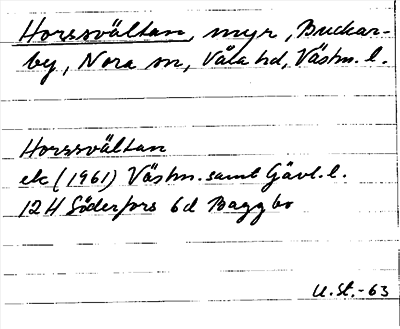 Horssvältan, myr, Buckar-
by, Nora sn, Våla hd, Västm. l.
Horssvältan
ek (1961) Västm. samt Gävl. l.
12 H Söderfors 6d Baggbo
U. St. -63